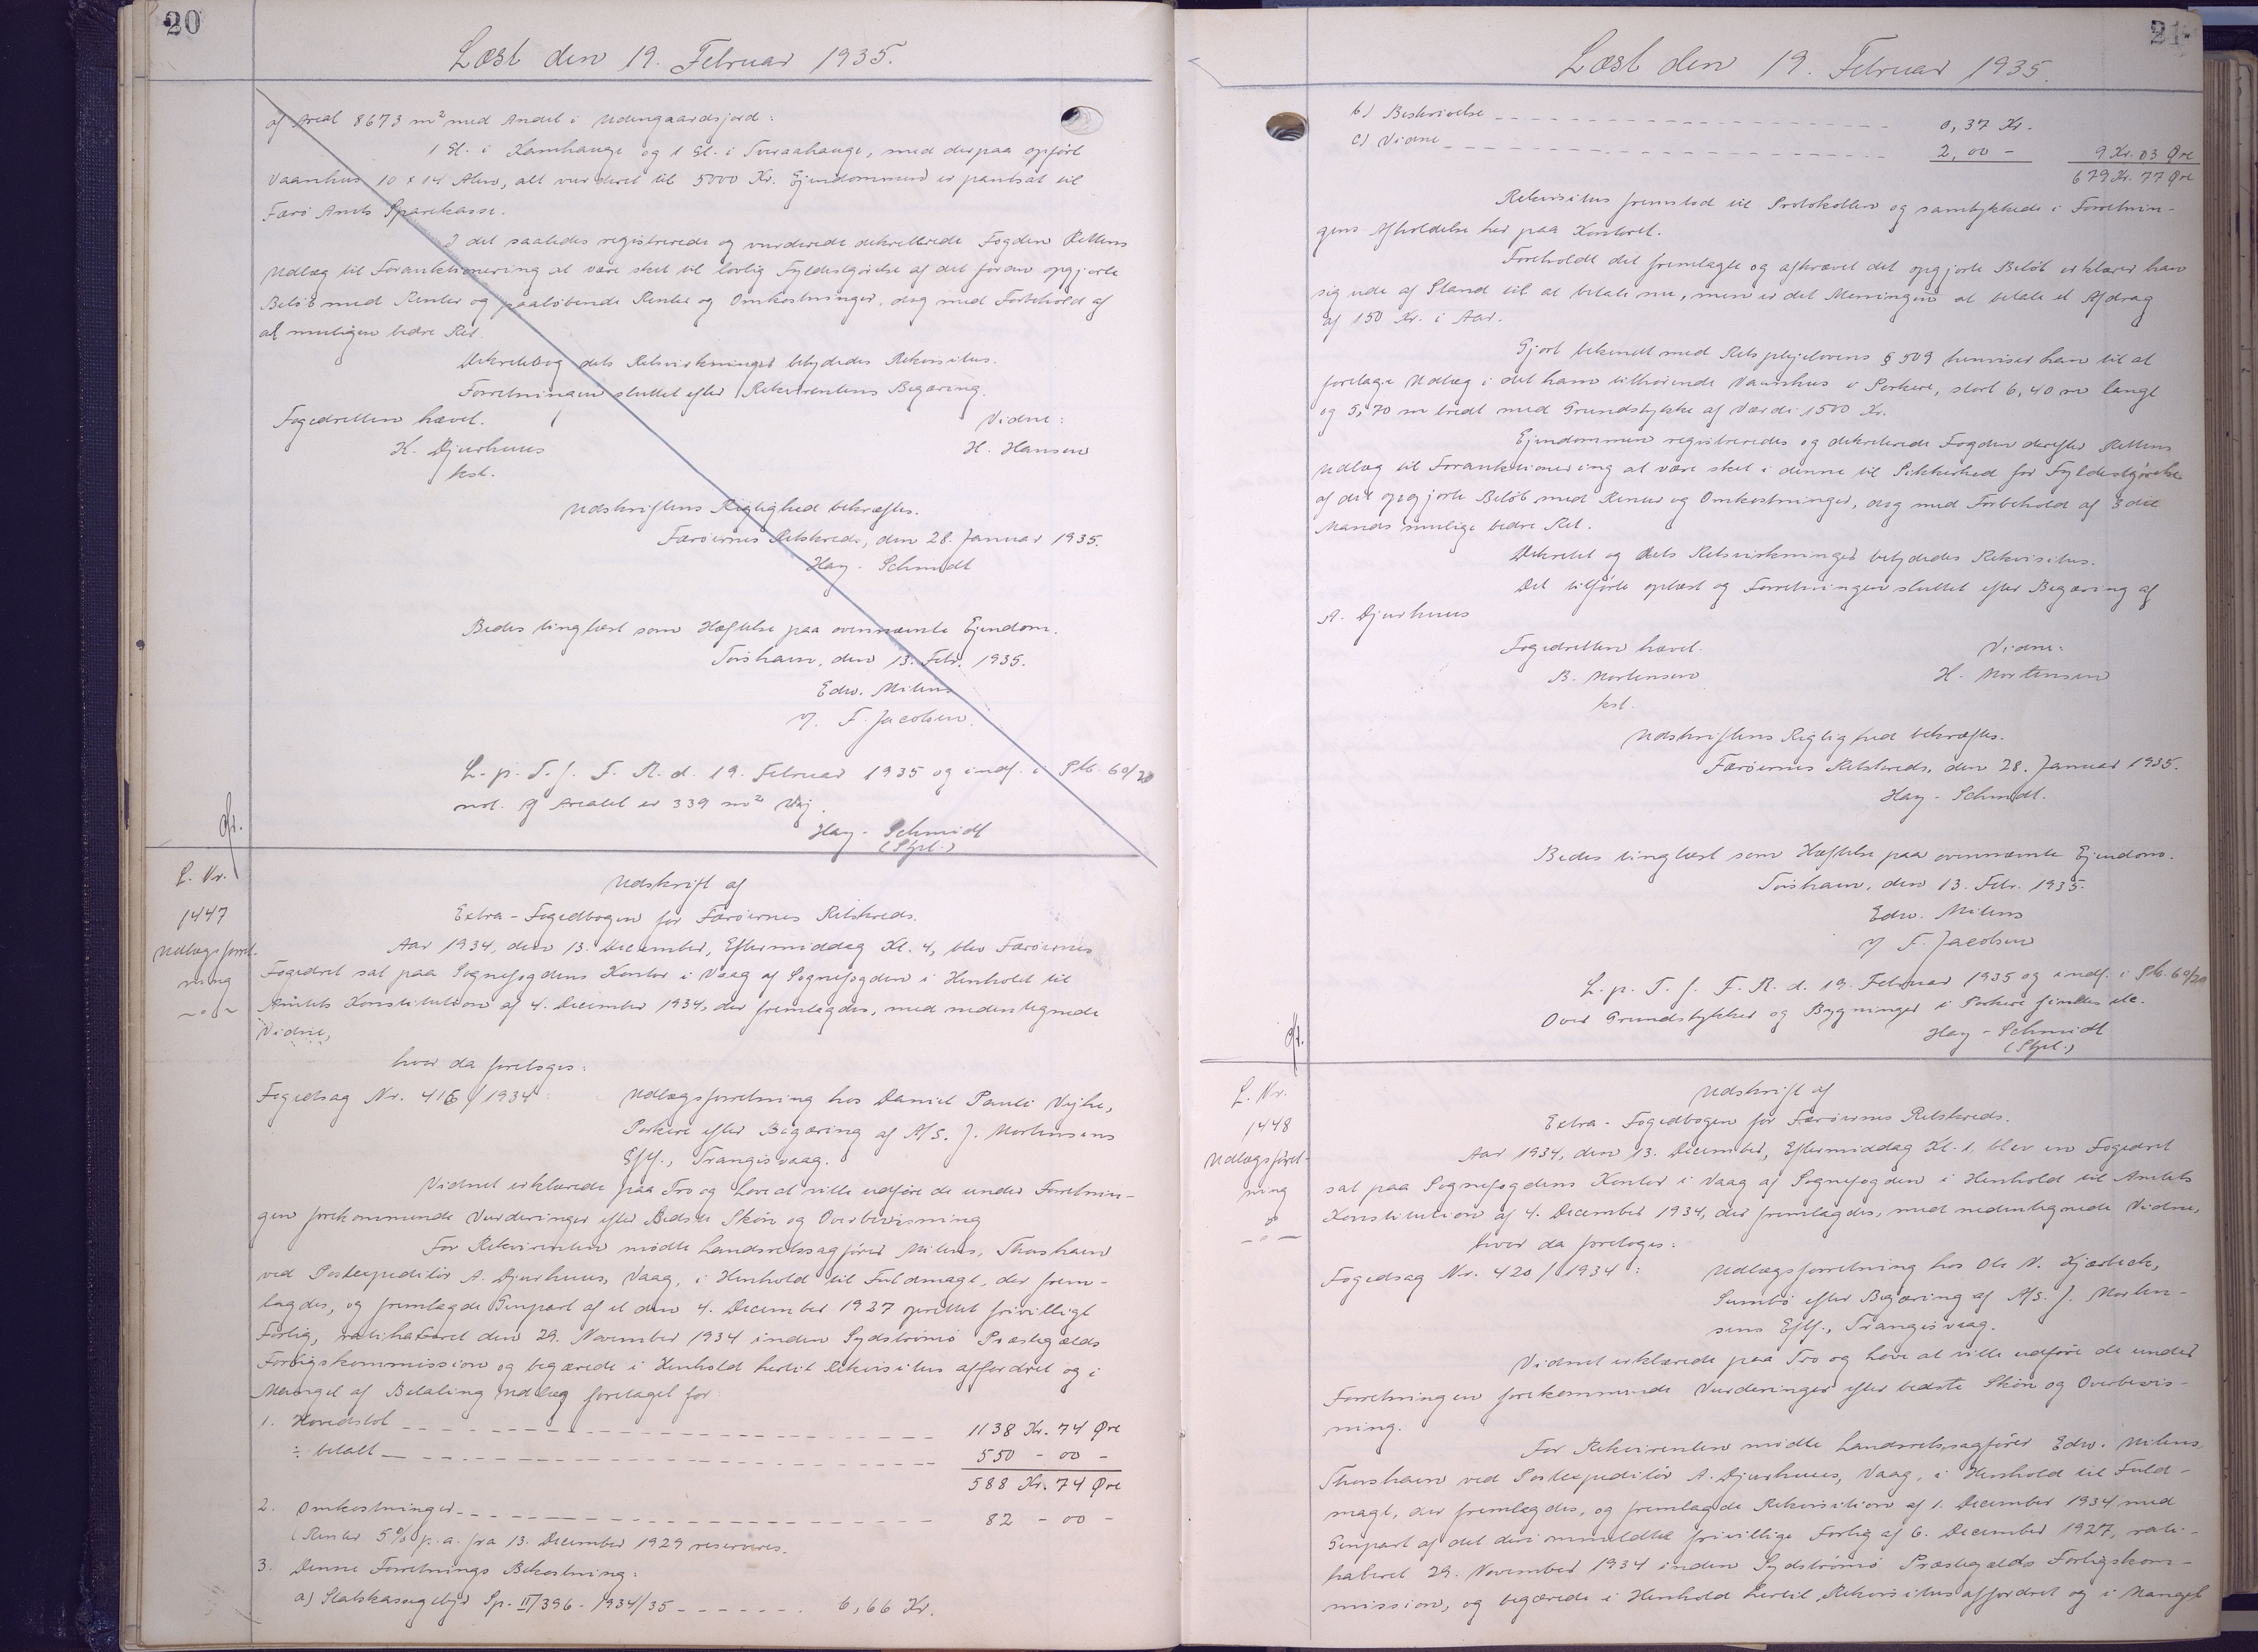 20
Læst den 19. Februar 1935.
af Areal 8673 m² med Andel i Udengaardsjord:
1 Gl. i Kamhauge og 1 Gl. i Tvraahauge, med derpaa opført
Vaanhus 10 x 14 Alen, alt vurderet til 5000 Kr. Ejendommen er pantsat til
Færø Amts Sparekasse.
I det saaledes registrerede og vurderede dekretterede Fogden Rettens
Udlæg til Forauktionering at være sket til lovlig Fyldestgørelse af det foran opgjorte
Beløb med Renter og paaløbende Renter og Omkostninger, dog med Forbehold af
al muligen bedre Ret.
Dekretet og dets Retsvirkninger betydedes Rekvisitus.
Forretningen sluttet efter Rekvirentens Begæring.
Fogedretten hævet. Vidne:
H. Djurhuus H. Hansen
kst.
Udskriftens Rigtighed bekræftes.
Færøernes Retskreds, den 28. Januar 1935.
Hay-Schmidt
Bedes tinglæst som Hæftelse paa ovennævnte Ejendom.
Torshavn, den 13. Febr. 1935.
Edw. Mitens
v/ F. Jacobsen.
L. p. T. f. F. R. d. 19. Februar 1935 og indf. i Ptb. 60/20
not. at Arealet er 339 m² Vej.
Hay-Schmidt
(Stpl.)
L. Nr.
1447
Udlægsforret-
ning
Udskrift af
Extra-Fogedbogen for Færøernes Retskreds.
Aar 1934, den 13. December, Eftermiddag Kl. 4, blev Færøernes
Fogedret sat paa Sognefogdens Kontor i Vaag af Sognefogden i Henhold til
Amtets Konstitution af 4. December 1934, der fremlagdes, med nedentegnede
Vidne,
hvor da foretoges:
Fogedsag Nr. 416/1934: Udlægsforretning hos Daniel Pauli Vejhe,
Porkere efter Begæring af A/S. J. Mortensens
Eftf., Trangisvaag.
Vidnet erklærede paa Tro og Love at ville udføre de under Forretnin-
gen forekommende Vurderinger efter Bedste Skøn og Overbevisning
For Rekvirenten mødte Landsretssagfører Mitens, Thorshavn
ved Postexpeditør A. Djurhuus, Vaag, i Henhold til Fuldmagt, der frem-
lagdes, og fremlagde Genpart af et den 4. December 1927 oprettet frivilligt
Forlig, ratihaberet den 29. November 1934 inden Sydstrømø Præstegælds
Forligskommission og begærede i Henhold hertil Rekvisitus affordret og i
Mangel af Betaling Udlæg foretaget for:
1. Hovedstol 1138 Kr. 74 Øre
÷ betalt 550 - 00 -
588 Kr. 74 Øre
2. Omkostninger 82 - 00 -
(Renter 5% p. a. fra 13. December 1929 reserveres.
3. Denne Forretnings Bekostning:
a) Statskassegebyr Sp. II/396 - 1934/35 6,66 Kr.
21
Læst den 19. Februar 1935.
b) Beskrivelse 0,37 Kr.
c) Vidne 2,00 - 9 Kr. 03 Øre
679 Kr. 77 Øre
Rekvisitus fremstod til Protokollen og samtykkede i Forretnin-
gens Afholdelse her paa Kontoret.
Foreholdt det fremlagte og afkrævet det opgjorte Beløb erklærer han
sig ude af Stand til at betale nu, men er det Meningen at betale et Afdrag
af 150 Kr. i Aar.
Gjort bekendt med Retsplejelovens § 509 henviser han til at
foretage Udlæg i det ham tilhørende Vaanhus i Porkere, stort 6,40 m langt
og 5,70 m bredt med Grundstykke af Værdi 1500 Kr.
Ejendommen registreredes og dekreterede Fogden derefter Rettens
Udlæg til Forauktionering at være sket i denne til Sikkerhed for Fyldestgørelse
af det opgjorte Beløb med Renter og Omkostninger, dog med Forbehold af 3die
Mands mulige bedre Ret.
Dekretet og dets Retsvirkninger betydedes Rekvisitus.
Det tilførte oplæst og Forretningen sluttet efter Begæring af
A. Djurhuus
Fogedretten hævet. Vidne:
B. Mortensen H. Mortensen
kst.
Udskriftens Rigtighed bekræftes.
Færøernes Retskreds, den 28. Januar 1935.
Hay-Schmidt.
Bedes tinglæst som Hæftelse paa ovennævnte Ejendom.
Torshavn, den 13. Febr. 1935.
Edw. Mitens
v/ F. Jacobsen
L. p. T. f. F. R. d. 19. Februar 1935 og indf. i Ptb. 60/20
Over Grundstykker og Bygninger i Porkere findes etc.
Hay-Schmidt
(Stpl.)
L. Nr.
1448
Udlægsforret-
ning
Udskrift af
Extra-Fogedbogen for Færøernes Retskreds.
Aar 1934, den 13. December, Eftermiddag Kl. 1, blev en Fogedret
sat paa Sognefogdens Kontor i Vaag af Sognefogden i Henhold til Amtets
Konstitution af 4. December 1934, der fremlagdes, med nedentegnede Vidne,
hvor da foretoges:
Fogedsag Nr. 420/1934: Udlægsforretning hos Ole N. Kjærbech,
Sumbø efter Begæring af A/S. J. Morten-
sens Eftf., Trangisvaag.
Vidnet erklærede paa Tro og Love at ville udføre de under
Forretningen forekommende Vurderinger efter bedste Skøn og Overbevis-
ning.
For Rekvirenten mødte Landsretssagfører Edw. Mitens,
Thorshavn ved Postexpeditør A. Djurhuus, Vaag, i Henhold til Fuld-
magt, der fremlagdes, og fremlagde Rekvisition af 1. December 1934 med
Genpart af det deri ommeldte frivillige Forlig af 6. December 1927, rati-
haberet 29. November 1934 inden Sydstrømø Præstegælds Forligskom-
mission, og begærede i Henhold hertil Rekvisitus affordret og i Mangel